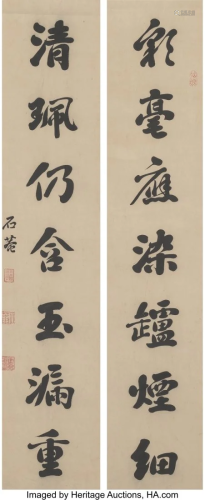 彩毫應染鑪煙細
清珮仍含玉漏重
石菴
Imaged by Heritage Auctions, HA.com